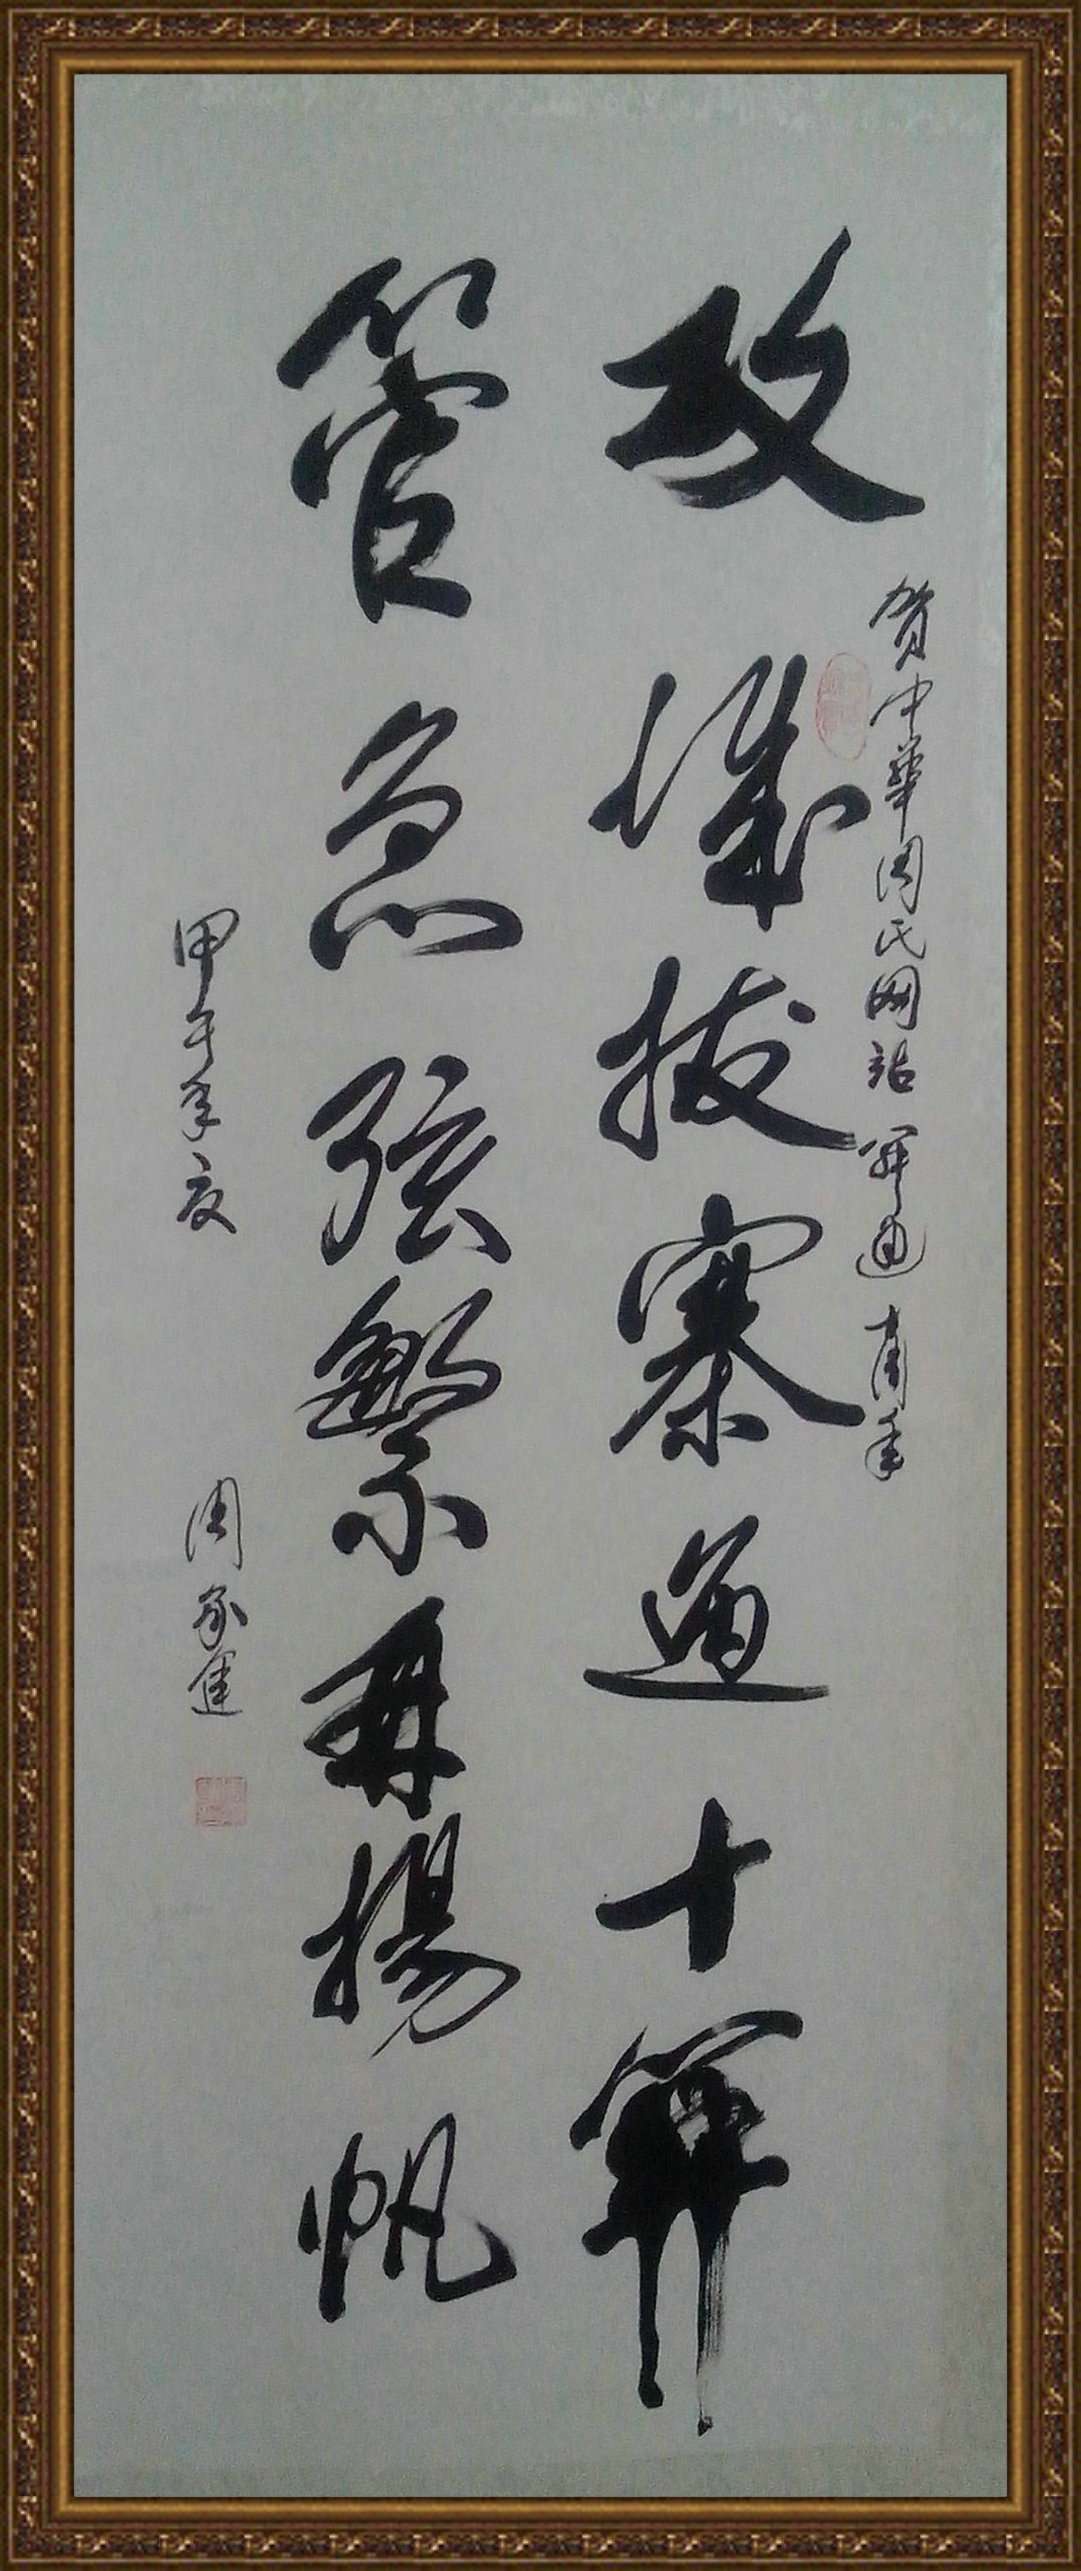 贺中華周氏网站開通十周年
攻城拔寨通十關
管急弦繁再揚帆
甲午年夏
周家進